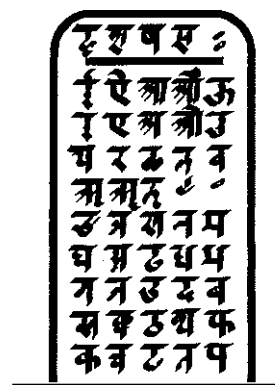 ह श ष स ः
ई ऐ आ औ ऊ
इ ए अ ओ उ
य र व
ऋ ॠ
ङ ञ ण न म
घ झ ढ ध भ
ग ज ड द ब
ख छ ठ थ फ
क च ट त प